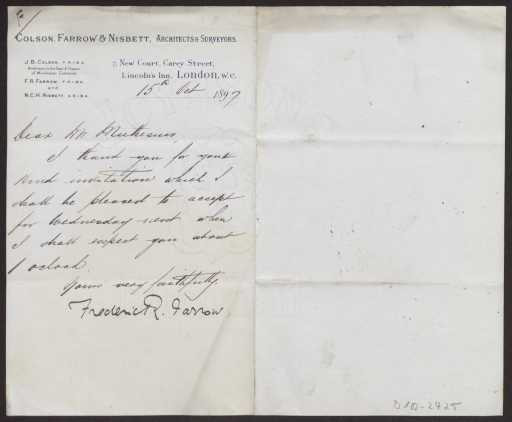 COLSON, FARROW & NISBETT, ARCHITECTS & SURVEYORS.
J. B. COLSON, F.R.I.B.A.
F. R. FARROW, F.R.I.B.A.
AND
N.C.H. NISBETT, A.R.I.B.A.
7, New Court, Carey Street,
Lincoln's Inn, London, W.C.
15th Oct 1897
Dear Mr Muthesius,
I thank you for your
kind invitation which I
shall be pleased to accept
for Wednesday next when
I shall expect you about
1 oclock.
Yours very faithfully,
Frederic R. Farrow
D 102-2725